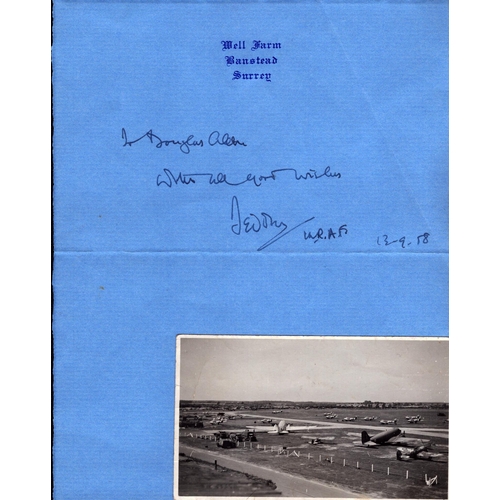 Well Farm
Banstead
Surrey
To Douglas
With all good wishes
Tedder M.R.A.F. 13-9.58